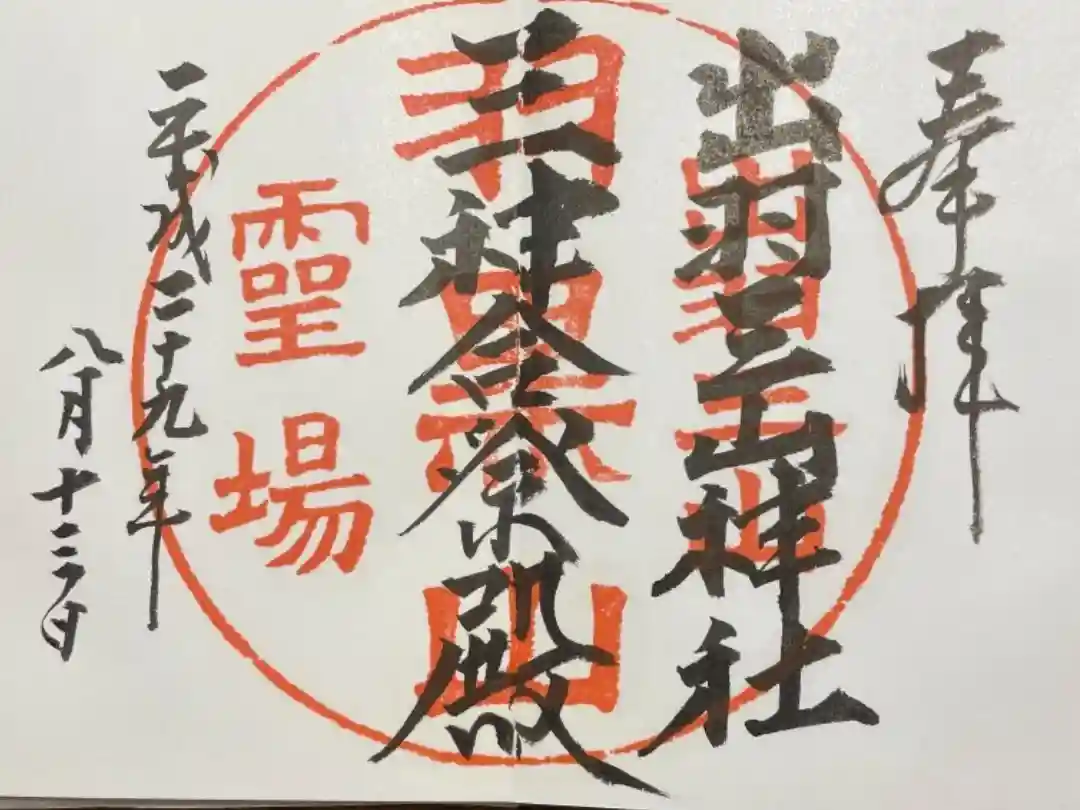 奉拝
出羽三山神社
三神合祭殿
平成二十九年
八月十二日
出羽三山
羽黒山
靈場